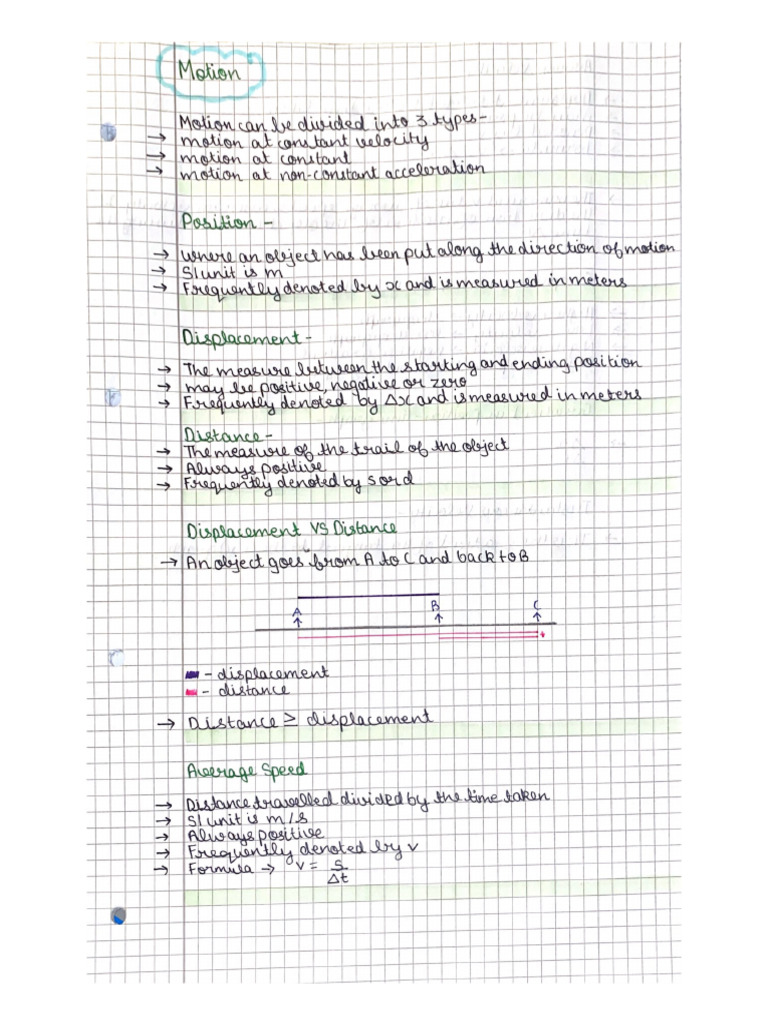 Motion
Motion can be divided into 3 types-
→ motion at constant velocity
→ motion at constant
→ motion at non-constant acceleration
Position -
→ where an object has been put along the direction of motion
→ SI unit is m
→ Frequently denoted by x and is measured in meters
Displacement -
→ The measure between the starting and ending position
→ may be positive, negative or zero
→ Frequently denoted by Δx and is measured in meters
Distance -
→ The measure of the trail of the object
→ Always positive
→ Frequently denoted by s or d
Displacement VS Distance
→ An object goes from A to C and back to B
A B C
- displacement
- distance
→ Distance ≥ displacement
Average Speed
→ Distance travelled divided by the time taken
→ SI unit is m/s
→ Always positive
→ Frequently denoted by v
→ Formula → v = s
Δt